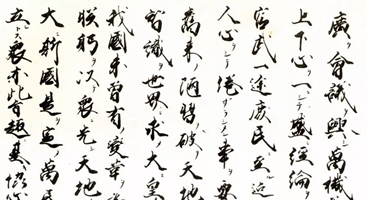 廣ク會議ヲ興シ萬機
上下心ヲ一ニシテ盛ニ經綸ヲ
官武一途庶民ニ至ル迄
人心ヲシテ倦マサラシメン事ヲ要
舊來ノ陋習ヲ破リ天地
智識ヲ世界ニ求メ大ニ皇
我國未曾有ノ變革ヲ
朕躬ヲ以テ衆ニ先ンシ天地
大ニ斯國是ヲ定メ萬民
立ントス衆亦此旨趣ニ基キ協心